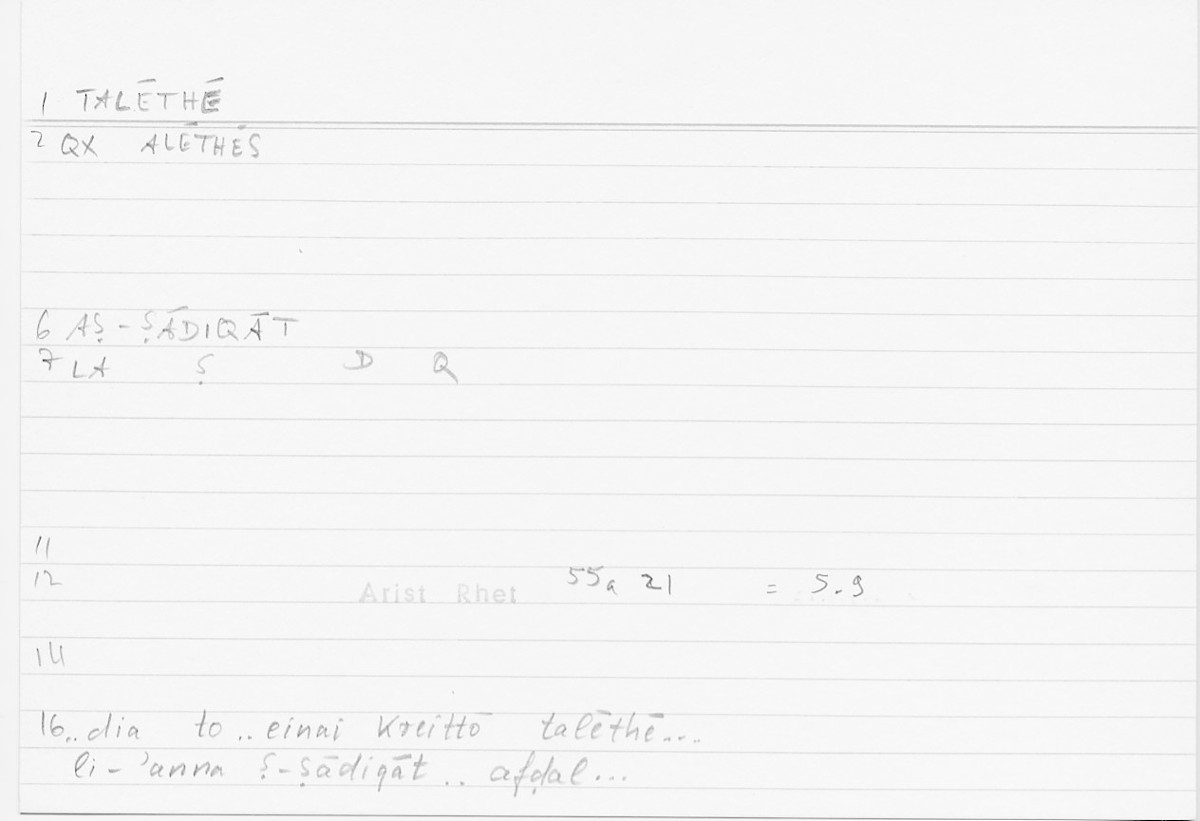 1 TALĒTHĒ
2 QX ALĒTHĒS
6 AṢ-ṢĀDIQĀT
7 LA Ṣ D Q
11
12 Arist Rhet 55a 21 = 5.9
14
16.. dia to .. einai kreittō talēthē...
li-ʾanna ṣ-ṣādiqāt .. afḍal...